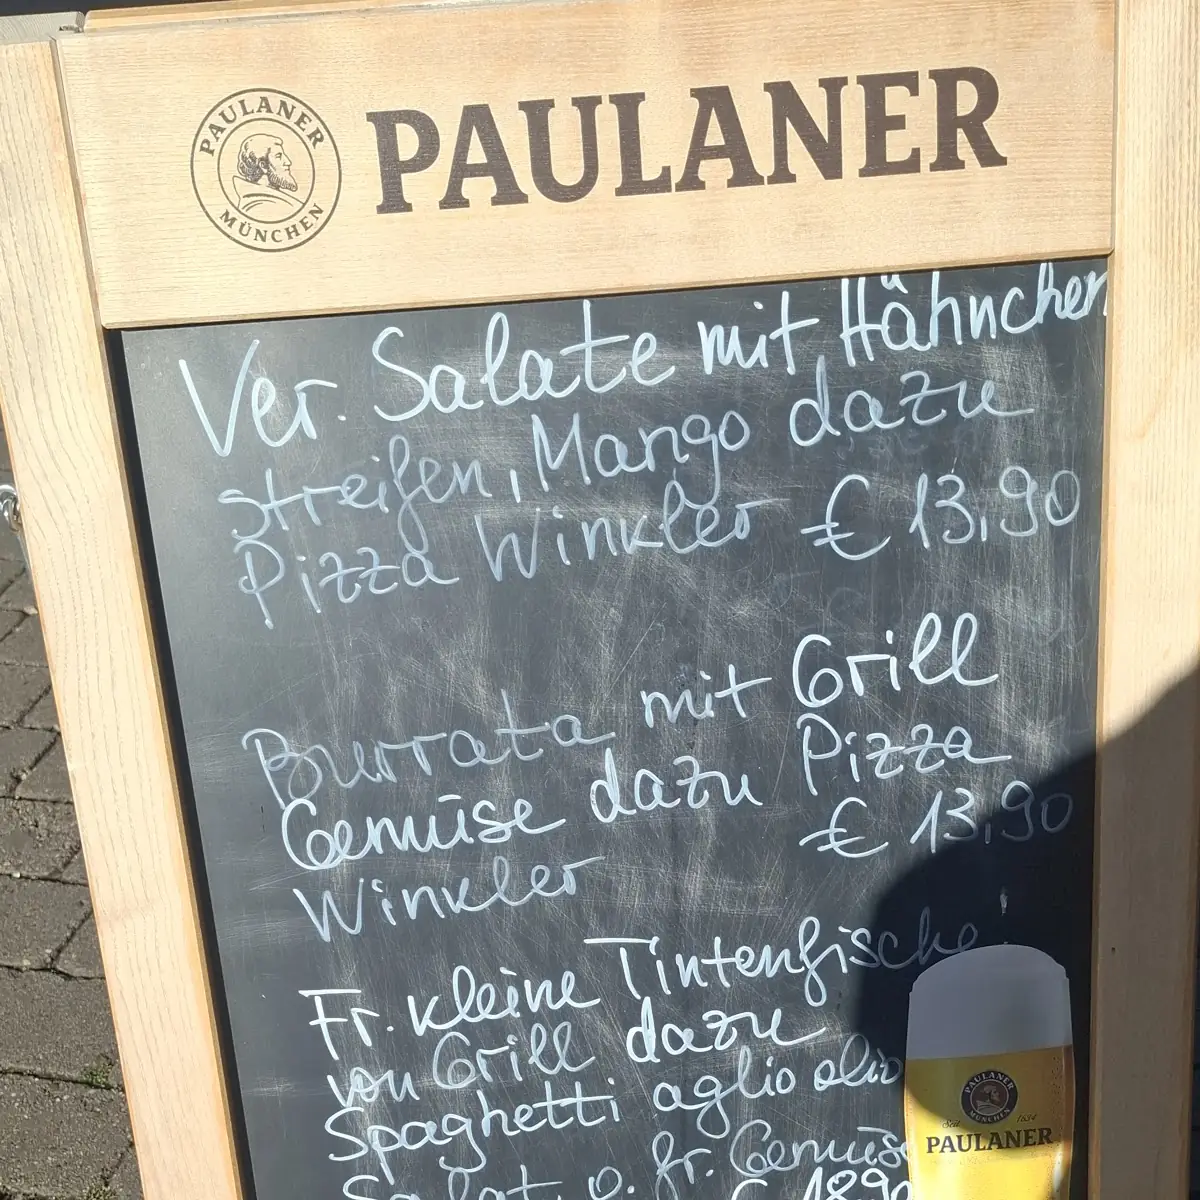 PAULANER
MÜNCHEN
PAULANER
Ver. Salate mit Hähnchen
streifen, Mango dazu
Pizza Winkler € 13,90
Burrata mit Grill
Gemüse dazu Pizza
Winkler € 13,90
Fr. kleine Tintenfische
von Grill dazu
Spaghetti aglio olio
Salat o. fr. Gemüse
€ 18,90
PAULANER
MÜNCHEN
Seit 1634
PAULANER